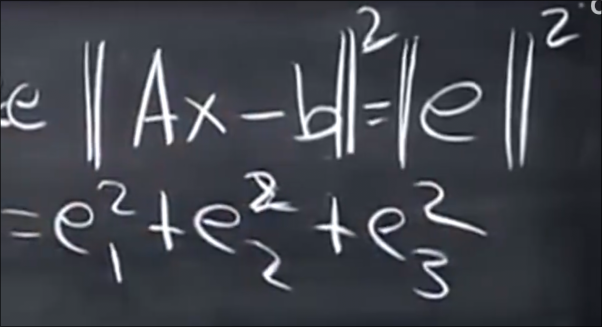 e ||Ax-b||²=||e||²
=e₁²+e₂²+e₃²